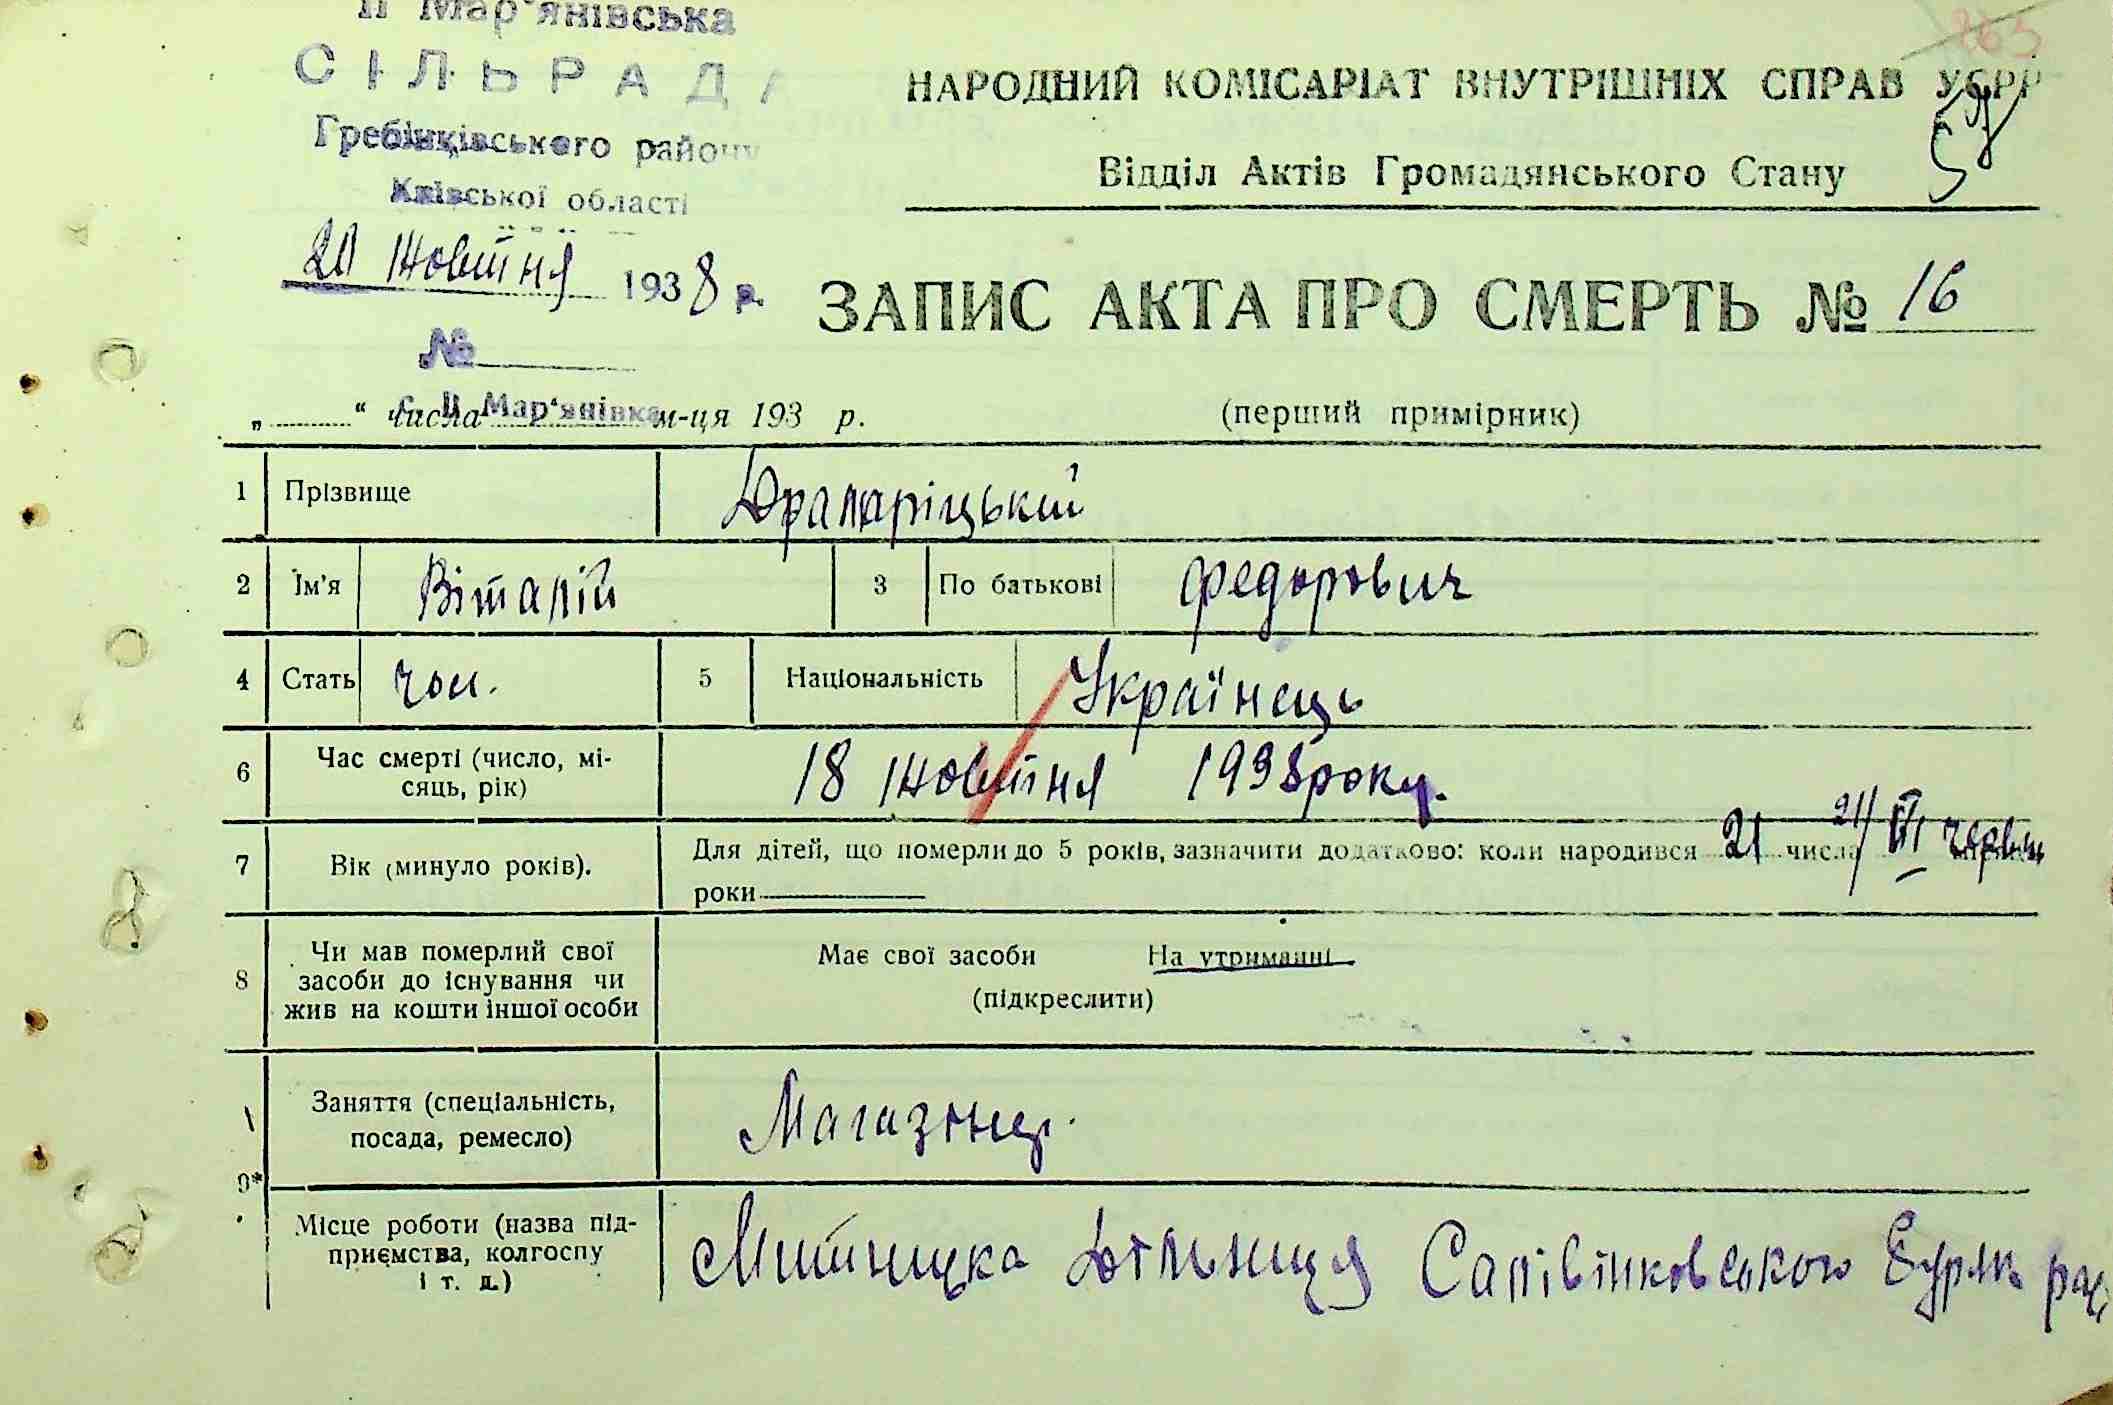 ІІ Мар'янівська
СІЛЬРАДА
Гребінківського району
Київської області
20 Жовтня 1938 р.
№
с. ІІ Мар'янівка
263
НАРОДНИЙ КОМІСАРІАТ ВНУТРІШНІХ СПРАВ УСРР
Відділ Актів Громадянського Стану
ЗАПИС АКТА ПРО СМЕРТЬ № 16
„ “ числа м-ця 193 р.
(перший примірник)
1 Прізвище
2 Ім'я Віталій 3 По батькові Федорович
4 Стать чол. 5 Національність Українець
6 Час смерті (число, мі-
сяць, рік) 18 Жовтня 1938 року.
7 Вік (минуло років). Для дітей, що померли до 5 років, зазначити додатково: коли народився 21 числа 21/VI червн
роки
8 Чи мав померлий свої
засоби до існування чи
жив на кошти іншої особи
Має свої засоби На утриманні
(підкреслити)
9*
Заняття (спеціальність,
посада, ремесло)
Магазінер.
Місце роботи (назва під-
приємства, колгоспу
і т. д.)
Митницка Дільниця Салівінковського Буряк рад